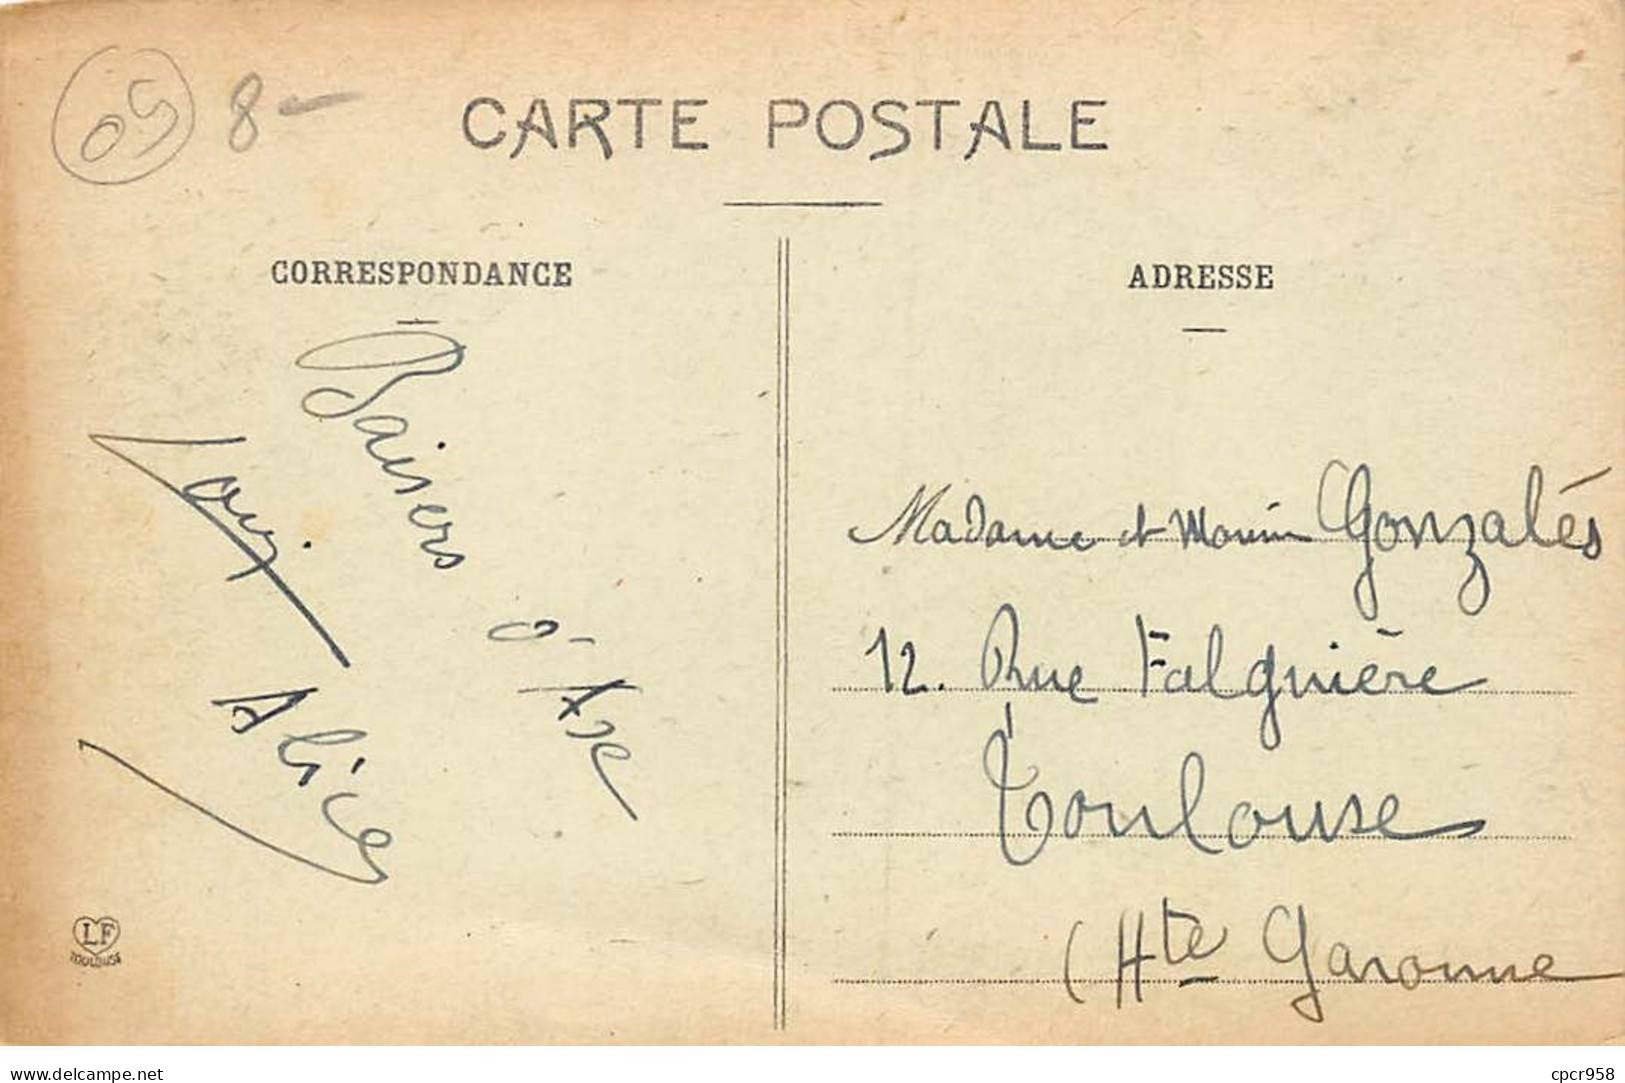 09 8-
CARTE POSTALE
CORRESPONDANCE
ADRESSE
Baisers d'Axe
Alice
Madame et Gonzalés
12. Rue Falguière
Toulouse
(Hte Garonne
LF
TOULOUSE
www.delcampe.net
cpcr958